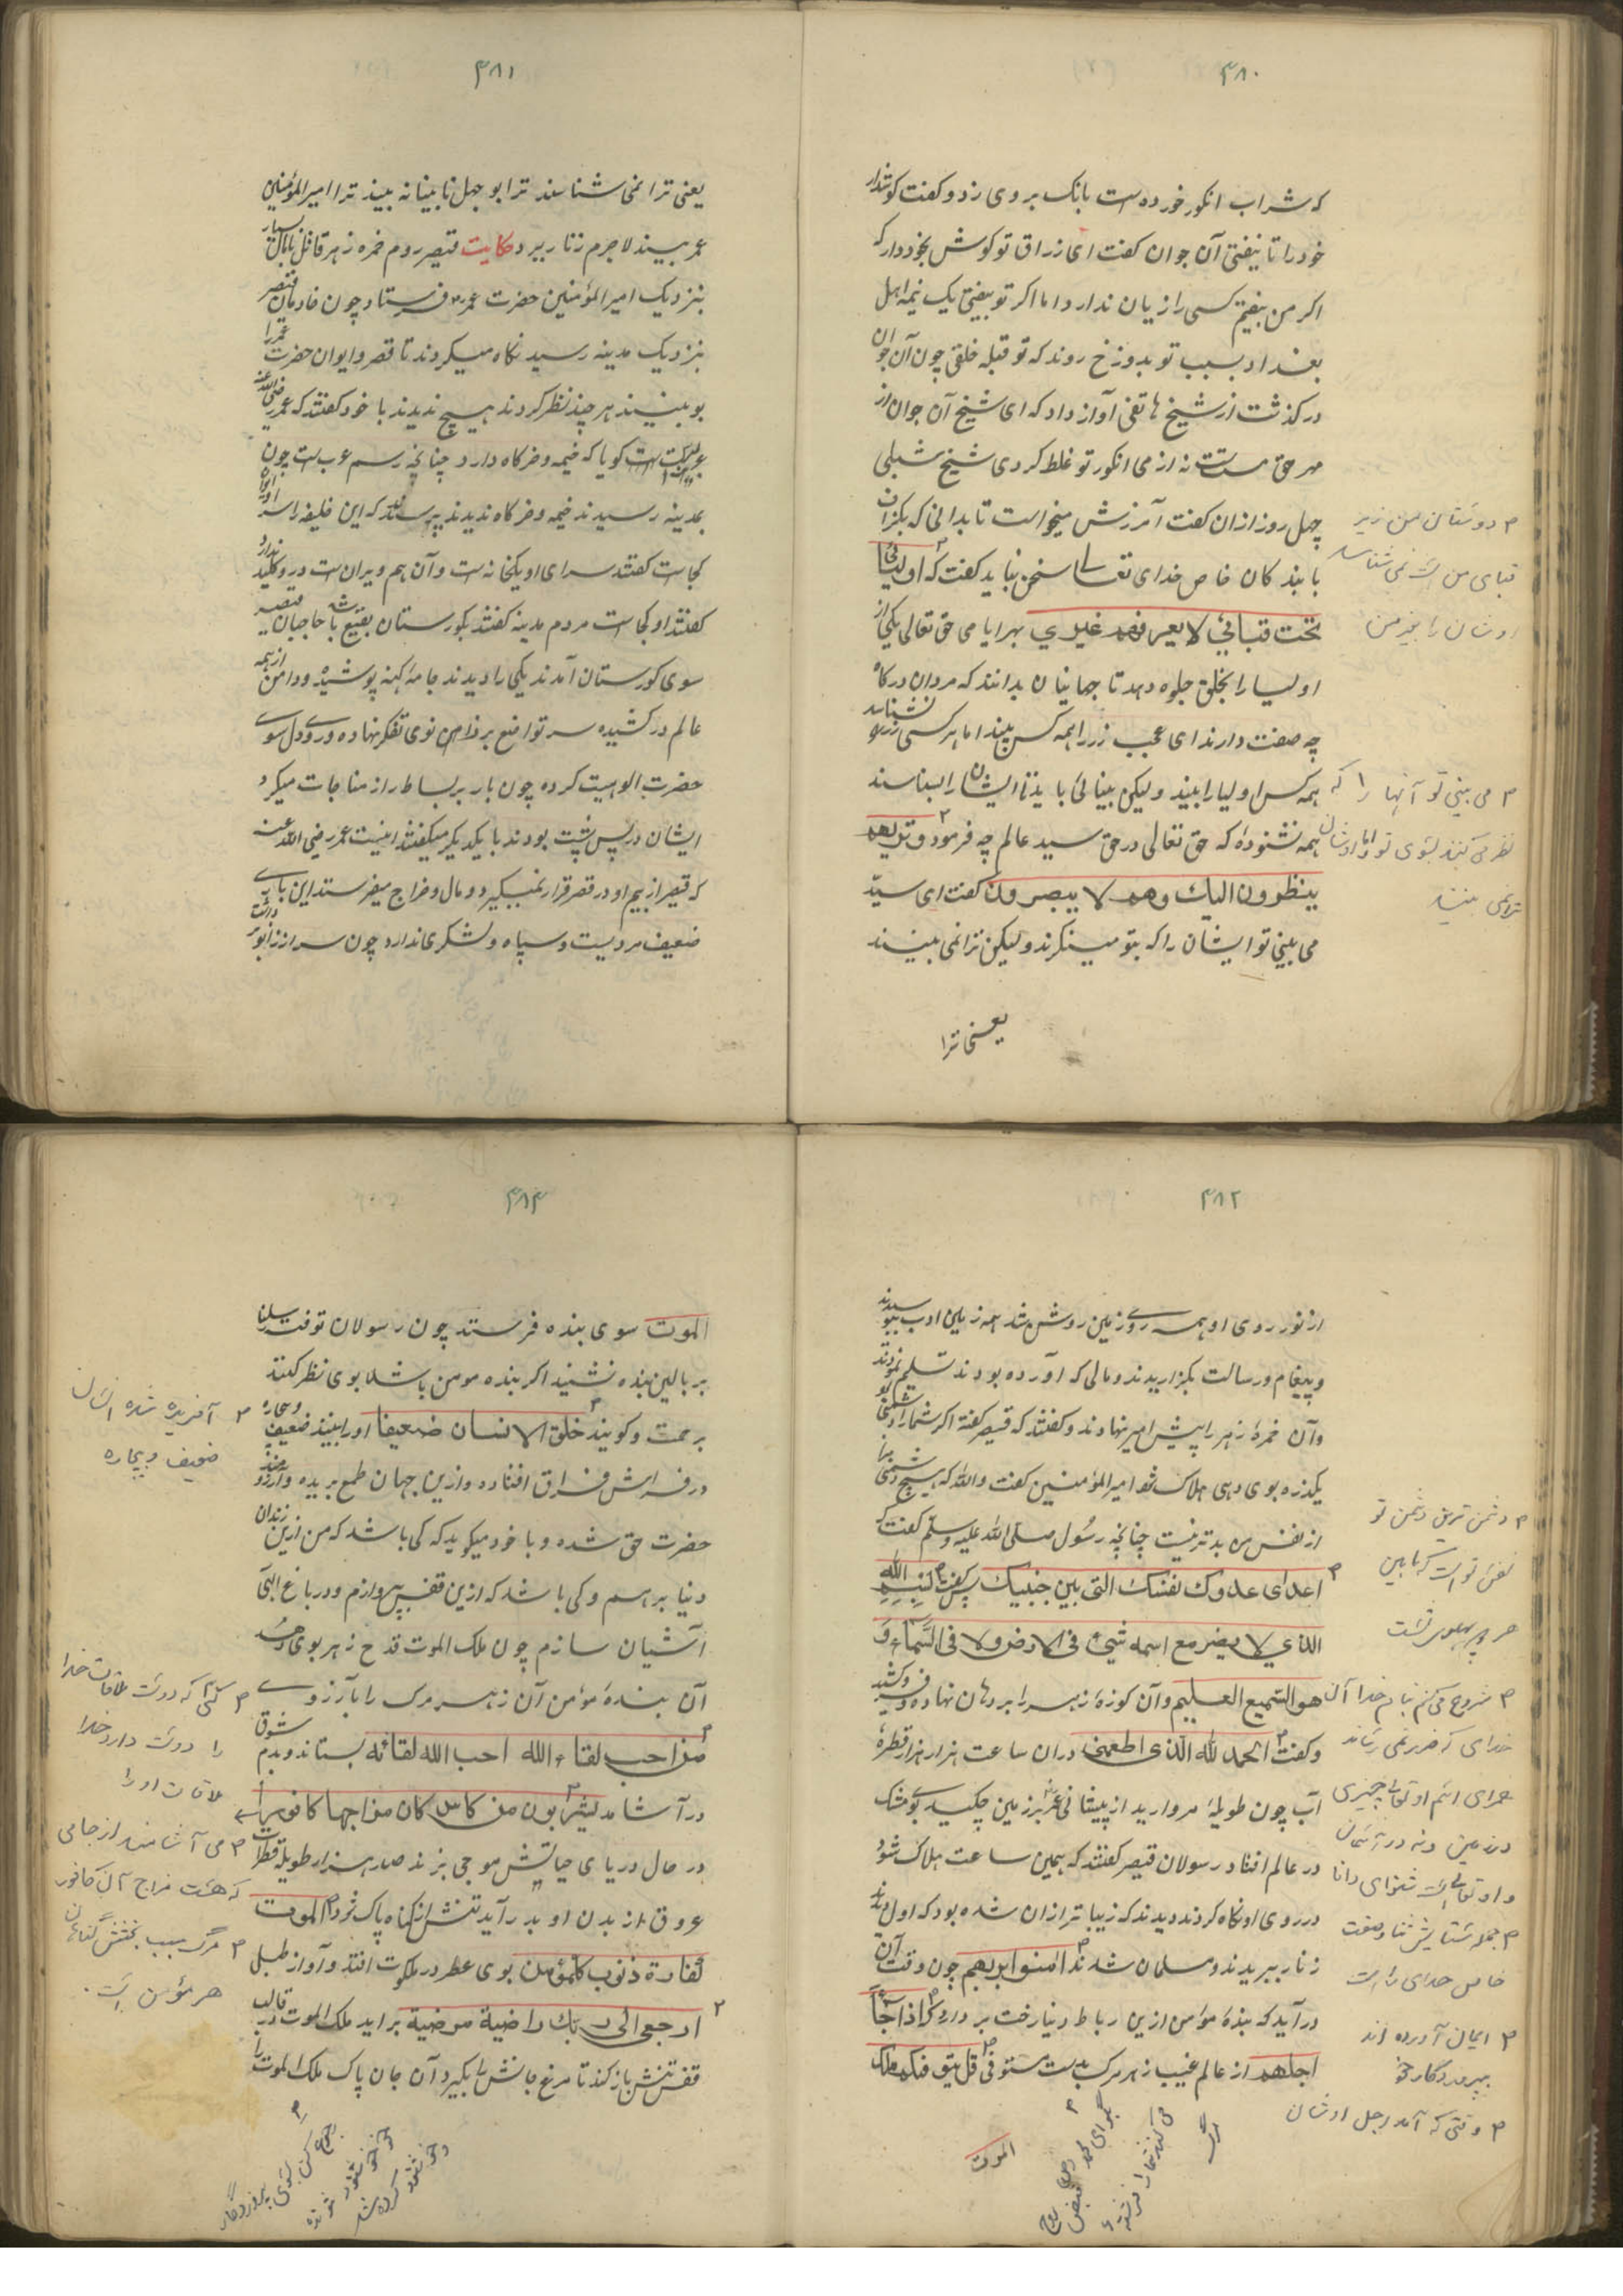 ۴۸۰
که شراب انکور خورده است بانک بر وی زد و کفت کوشدار
خود را تا نیفتی آن جوان کفت ای زراق تو کوش بخود دار که
اکر من بیفتم کسی را زیان ندارد اما اکر تو بیفتی یک نیمه اهل
بغداد بسبب تو بدوزخ روند که تو قبله خلقی چون آن جوان
درکذشت از شیخ هاتفی آواز داد که ای شیخ آن جوان از
مهر حق مست است نه از می انکور تو غلط کردی شیخ شبلی
چهل روز ازان کفت آمرزش میخواست تا بدانی که بکزاف
با بندکان خاص خدای تعالی سخن نباید کفت که اولیائی
تحت قبائی لا یعرفهم غیری بهر ایامی حق تعالی یکی از
اولیا را بخلق جلوه دهد تا جهانیان بدانند که مردان درکاه
چه صفت دارند ای عجب زر را همه کس بیند اما هر کسی زر نشناسد
همه کس اولیا را بیند ولیکن بینائی باید تا ایشان را بشناسند
همه نشنوده که حق تعالی در حق سید عالم چه فرمود و تریهم
ینظرون الیک وهم لا یبصرون کفت ای سید
می بینی تو ایشان را که بتو مینکرند ولیکن ترا نمی بینند
یعنی ترا
۳ دوستان من زیر
قبای من است نمی شناسد
اوشان را بغیر من
۳ می بینی تو آنها را که
نظر می کنند بسوی تو اما اوشان
ترا نمی بینند
۴۸۱
یعنی ترا نمی شناسند ترا بو جهل نابینا نه بیند ترا امیرالمؤمنین
عمر بیند لاجرم زنار ببرد حکایت قیصر روم خمره زهر قاتل با مال بسیار
بنزدیک امیرالمؤمنین حضرت عمر فرستاد چون خادمان قیصر
بنزدیک مدینه رسید نکاه میکردند تا قصر و ایوان حضرت عمر را
بو ببینند هر چند نظر کردند هیچ ندیدند با خود کفتند که عمر رضی الله عنه
عربیت است کویا که خیمه و خرکاه دارد چنانچه رسم عرب است چون
بمدینه رسیدند خیمه و خرکاه ندیدند پرسیدند که این خلیفه را سرا
کجاست کفتند سرای او یکخانه است و آن هم ویران است در و کلید ندارد
کفتند او کجاست مردم مدینه کفتند بکورستان بقیع باشد حاجبان قیصر
سوی کورستان آمدند یکی را دیدند جامه کهنه پوشیده و دامن از همه
عالم درکشیده سر تواضع بر زانوی تفکر نهاده و روی دل سوی
حضرت الوهیت کرده چون بار بر بساط راز مناجات میکرد
ایشان در پس پشت بودند با یکدیکر میکفتند اینست عمر رضی الله عنه
که قیصر از بیم او در قصر قرار نمیکیرد و مال و خراج میفرستد این باری
ضعیف مردیست و سپاه و لشکری ندارد چون سر از زانو برداشت
۴۸۲
از نور روی او همه روی زمین روشن شد همه زمین ادب ببوسیدند
و پیغام و رسالت بکزاریدند و مالی که آورده بودند تسلیم نمودند
و آن خمره زهر را پیش امیر نهادند و کفتند که قیصر کفته اکر شما را دشمنی بو
یکذره بوی دهی هلاک شود امیرالمؤمنین کفت والله که هیچ دشمنی مرا
از نفس من بدتر نیست چنانچه رسول صلی الله علیه وسلم کفت که
اعدای عدوک نفسک التی بین جنبیک پس کفت بسم الله
الذی لا یضر مع اسمه شیء فی الارض ولا فی السماء و
هو السمیع العلیم و آن کوزه زهر را بر دهان نهاده و فروکشید
و کفت الحمد لله الذی اطعمنی دران ساعت هزار هزار قطره
آب چون طویله مروارید از پیشانی عمر بر زمین چکید بوی مشک
در عالم افتاد رسولان قیصر کفتند که همین ساعت هلاک شود
در روی او نکاه کردند دیدند که زیباتر ازان شده بود که اول
زنار ببریدند و مسلمان شدند امنوا بربهم چون وقت آن
درآید که بنده مؤمن ازین رباط دنیا رخت بردارد که اذا جاء
اجلهم از عالم غیب زهر مرک بدست مستوفی قل یتوفیکم ملک
الموت
۳ دشمن ترین دشمن تو
نفس تو است که مابین
هر دو پهلوی تست
۳ شروع میکنم بنام خدا آن
خدای که ضرر نمی رساند
همرای اسم او تعالی چیزی
در زمین و نه در آسمان
و او تعالی است شنوای دانا
۳ جمله ستایش ثنا و صفت
خاص خدای را است
۳ ایمان آورده اند
بپروردگار خود
۳ وقتی که آمد اجل اوشان
۴۸۳
الموت سوی بنده فرستد چون رسولان توفته رسلنا
بر بالین بنده نشیند اکر بنده مومن باشد بوی نظر کنند
برحمت و کویند خلق الانسان ضعیفا اورا بینند ضعیف و بیچاره
در فراش فراق افتاده و ازین جهان طمع بریده و آرزومند
حضرت حق شده و با خود میکوید که کی باشد که من ازین زندان
دنیا برهم و کی باشد که ازین قفس بپروازم و در باغ الهی
آشیان سازم چون ملک الموت قدح زهر بوی دهد
آن بنده مؤمن آن زهر مرک را بآرزوی
من احب لقاء الله احب الله لقائه بستاند و بدم شوق
درآشامد یشربون من کاس کان مزاجها کافورا
در حال دریای حیاتش موجی بزند صد هزار طویله قطرات
عروق از بدن او بدر آید تنش از کناه پاک شود الموت
کفارة ذنوب کلمؤمن بوی عطر در ملکوت افتد و آواز طبل
ارجعی الی ربک راضیة مرضیة براید ملک الموت در قالب
قفس تنش باز کند تا مرغ جانش را بکیرد آن جان پاک ملک الموت را
۳ آفریده شده انسان
ضعیف و بیچاره
۳ کسی که دوست ملاقات خدا
را دوست دارد خدا
ملاقات او را
۳ می آشامند از جامی
که هست مزاج آن کافور
۳ مرگ سبب بخشش گناهان
هر مؤمن است.
رجوع کن بسوی پروردگار
خوشنود شونده
و خوشنود کرده شده